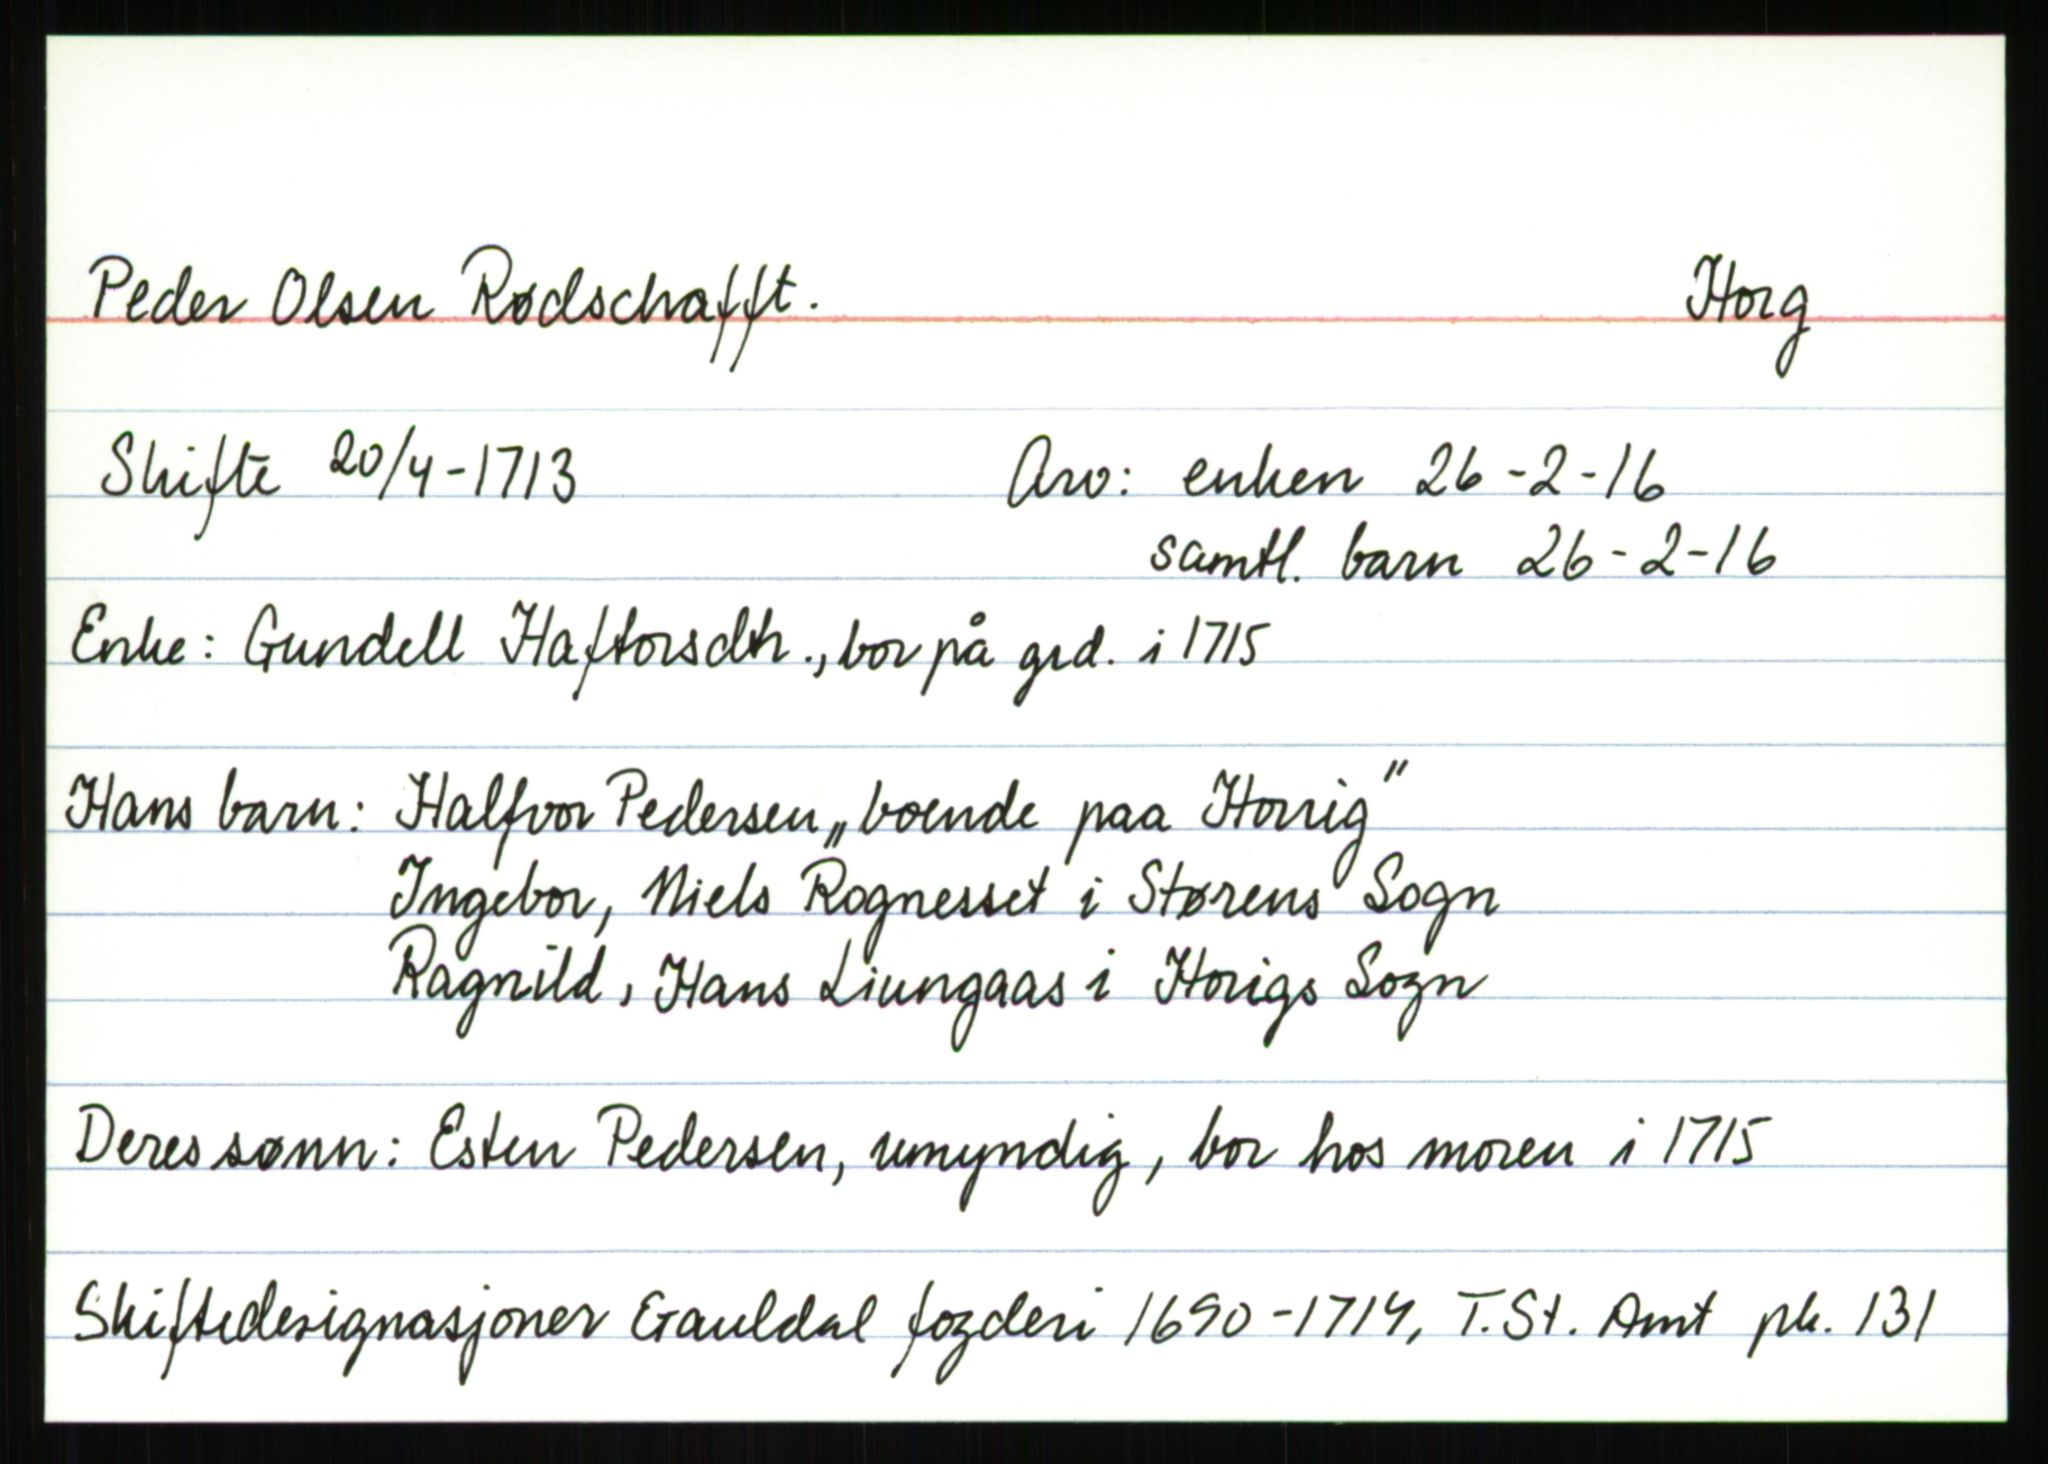 Peder Olsen Rødschafft. Horg
Skifte 20/4-1713 Arv: enken 26-2-16
samtl. barn 26-2-16
Enke: Gundell Haftorsdtr., bor på grd. i 1715
Hans barn: Halfvor Pedersen „boende paa Horrig"
Ingebor, Niels Rognesset i Størens Sogn
Ragnild, Hans Liungaas i Horigs Sogn
Deres sønn: Esten Pedersen, umyndig, bor hos moren i 1715
Skiftedesignasjoner Gauldal fogderi 1690-1714, T. St. Amt pk. 131